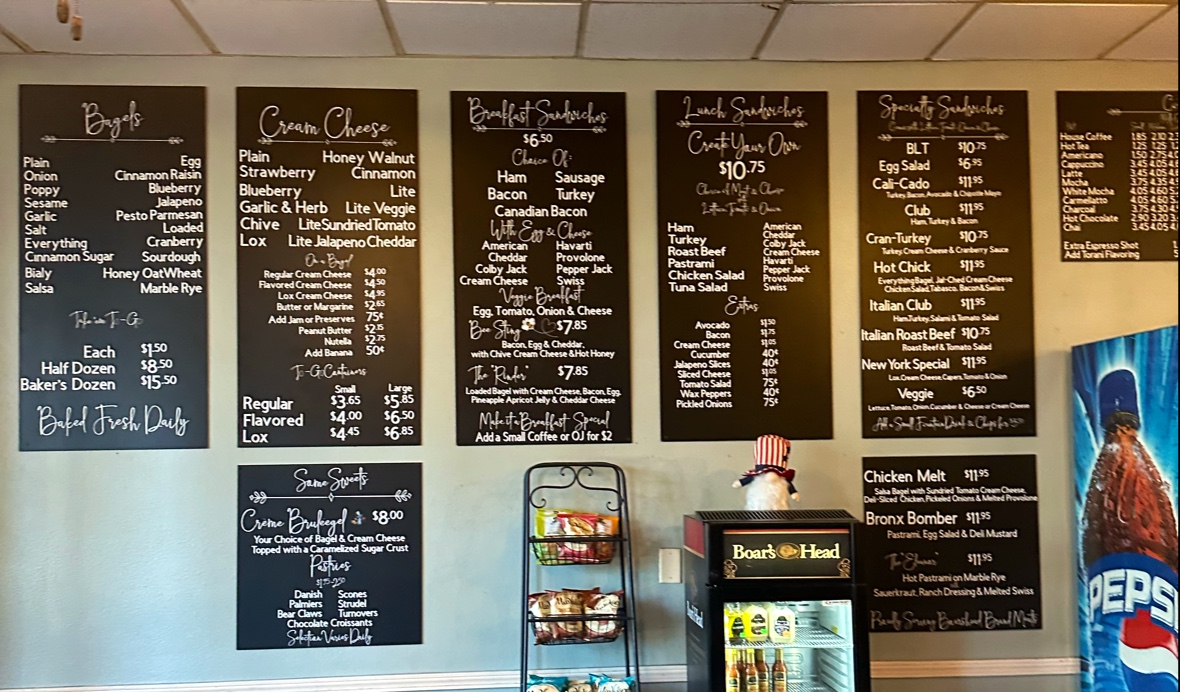 Bagels
Plain Egg
Onion Cinnamon Raisin
Poppy Blueberry
Sesame Jalapeno
Garlic Pesto Parmesan
Salt Loaded
Everything Cranberry
Cinnamon Sugar Sourdough
Bialy Honey OatWheat
Salsa Marble Rye
Take'em To-Go
Each $1.50
Half Dozen $8.50
Baker's Dozen $15.50
Baked Fresh Daily
Cream Cheese
Plain Honey Walnut
Strawberry Cinnamon
Blueberry Lite
Garlic & Herb Lite Veggie
Chive Lite Sundried Tomato
Lox Lite Jalapeno Cheddar
On a Bagel
Regular Cream Cheese $4.00
Flavored Cream Cheese $4.50
Lox Cream Cheese $4.95
Butter or Margarine $2.65
Add Jam or Preserves 75¢
Peanut Butter $2.15
Nutella $2.75
Add Banana 50¢
To-Go Containers
Small Large
Regular $3.65 $5.85
Flavored $4.00 $6.50
Lox $4.45 $6.85
Some Sweets
Creme Bruleegel $8.00
Your Choice of Bagel & Cream Cheese
Topped with a Caramelized Sugar Crust
Pastries
Danish Scones
Palmiers Strudel
Bear Claws Turnovers
Chocolate Croissants
Selection Varies Daily
Breakfast Sandwiches
$6.50
Choice Of:
Ham Sausage
Bacon Turkey
Canadian Bacon
With Egg & Cheese
American Havarti
Cheddar Provolone
Colby Jack Pepper Jack
Cream Cheese Swiss
Veggie Breakfast
Egg, Tomato, Onion & Cheese
Bee Sting $7.85
Bacon, Egg & Cheddar,
with Chive Cream Cheese & Hot Honey
The "Rinder" $7.85
Loaded Bagel with Cream Cheese, Bacon, Egg,
Pineapple Apricot Jelly & Cheddar Cheese
Make it a Breakfast Special
Add a Small Coffee or OJ for $2
Lunch Sandwiches
Create Your Own
$10.75
Choice of Meat & Cheese
Lettuce, Tomato & Onion
Ham American
Turkey Cheddar
Roast Beef Colby Jack
Pastrami Cream Cheese
Chicken Salad Havarti
Tuna Salad Pepper Jack
Provolone
Swiss
Extras
Avocado $1.50
Bacon $1.75
Cream Cheese $1.05
Cucumber 40¢
Jalapeno Slices 40¢
Sliced Cheese $1.05
Tomato Salad 75¢
Wax Peppers 40¢
Pickled Onions 75¢
Specialty Sandwiches
BLT $10.75
Egg Salad $6.95
Cali-Cado $11.95
Turkey, Bacon, Avocado & Chipotle Mayo
Club $11.95
Ham, Turkey & Bacon
Cran-Turkey $10.75
Turkey, Cream Cheese & Cranberry Sauce
Hot Chick $11.95
Everything Bagel, Jal-Ched Cream Cheese
Chicken Salad, Tabasco, Bacon & Swiss
Italian Club $11.95
Ham, Turkey, Salami & Tomato Salad
Italian Roast Beef $10.75
Roast Beef & Tomato Salad
New York Special $11.95
Lox, Cream Cheese, Capers, Tomato & Onion
Veggie $6.50
Lettuce, Tomato, Onion, Cucumber & Cheese or Cream Cheese
Add a Small Fountain Drink & Chips for
Chicken Melt $11.95
Salsa Bagel with Sundried Tomato Cream Cheese,
Deli-Sliced Chicken, Pickeled Onions & Melted Provolone
Bronx Bomber $11.95
Pastrami, Egg Salad & Deli Mustard
The $11.95
Hot Pastrami on Marble Rye
Sauerkraut, Ranch Dressing & Melted Swiss
Proudly Serving Boarshead Brand Meats
House Coffee 1.85 2.10 2.3
Hot Tea 1.25 1.25
Americano 1.50 2.75
Cappuccino 3.45 4.05
Latte 3.45 4.05
Mocha 3.75 4.35
White Mocha 4.05 4.60
Carmellatto 4.05 4.60
Charcoal 3.75 4.30
Hot Chocolate 2.90 3.20
Chai 3.45 4.05
Extra Espresso Shot
Add Torani Flavoring
Boar's Head
PEPS